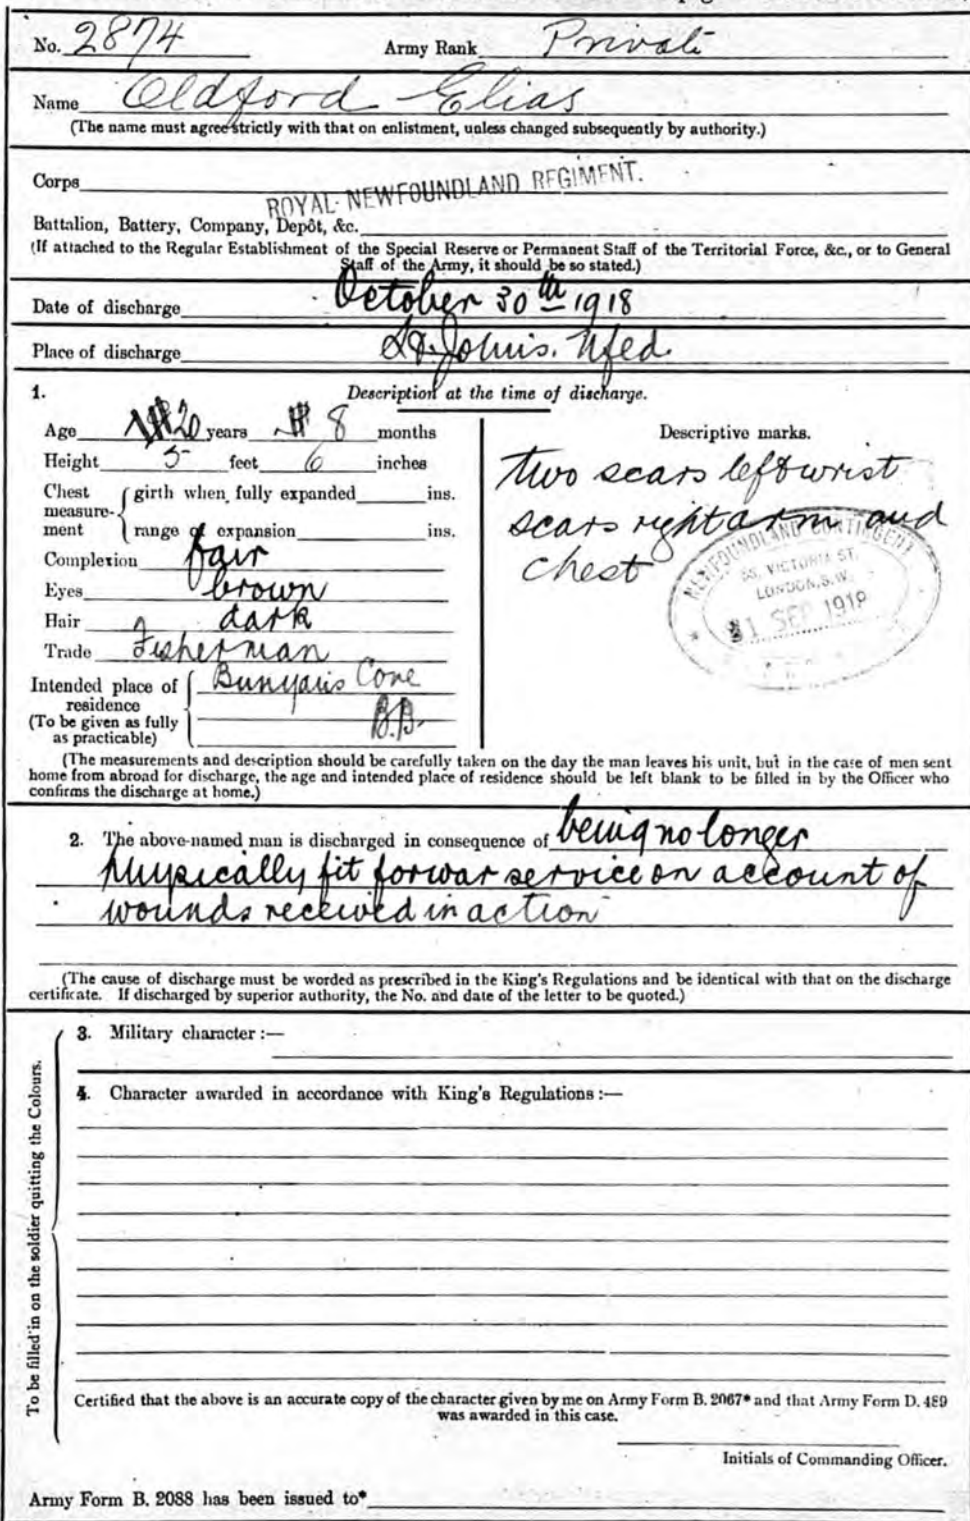 No. 2874 Army Rank Private
Name Oldford Elias
(The name must agree strictly with that on enlistment, unless changed subsequently by authority.)
Corps
ROYAL NEWFOUNDLAND REGIMENT.
Battalion, Battery, Company, Depôt, &c.
(If attached to the Regular Establishment of the Special Reserve or Permanent Staff of the Territorial Force, &c., or to General
Staff of the Army, it should be so stated.)
Date of discharge October 30th 1918
Place of discharge St. John's. Nfld.
1. Description at the time of discharge.
Age 20 years 8 months
Height 5 feet 6 inches
Chest measure-ment { girth when fully expanded ins.
range of expansion ins.
Complexion fair
Eyes brown
Hair dark
Trade Fisherman
Intended place of residence Bunyan's Cove
(To be given as fully as practicable) B.B.
Descriptive marks.
two scars left wrist
scars right arm and
chest
NEWFOUNDLAND CONTINGENT
VICTORIA ST.
LONDON, S.W.
SEP 1918
(The measurements and description should be carefully taken on the day the man leaves his unit, but in the case of men sent
home from abroad for discharge, the age and intended place of residence should be left blank to be filled in by the Officer who
confirms the discharge at home.)
2. The above-named man is discharged in consequence of being no longer
physically fit for war service on account of
wounds received in action
(The cause of discharge must be worded as prescribed in the King's Regulations and be identical with that on the discharge
certificate. If discharged by superior authority, the No. and date of the letter to be quoted.)
To be filled in on the soldier quitting the Colours.
3. Military character :—
4. Character awarded in accordance with King's Regulations :—
Certified that the above is an accurate copy of the character given by me on Army Form B. 2067* and that Army Form D. 489
was awarded in this case.
Initials of Commanding Officer.
Army Form B. 2088 has been issued to*